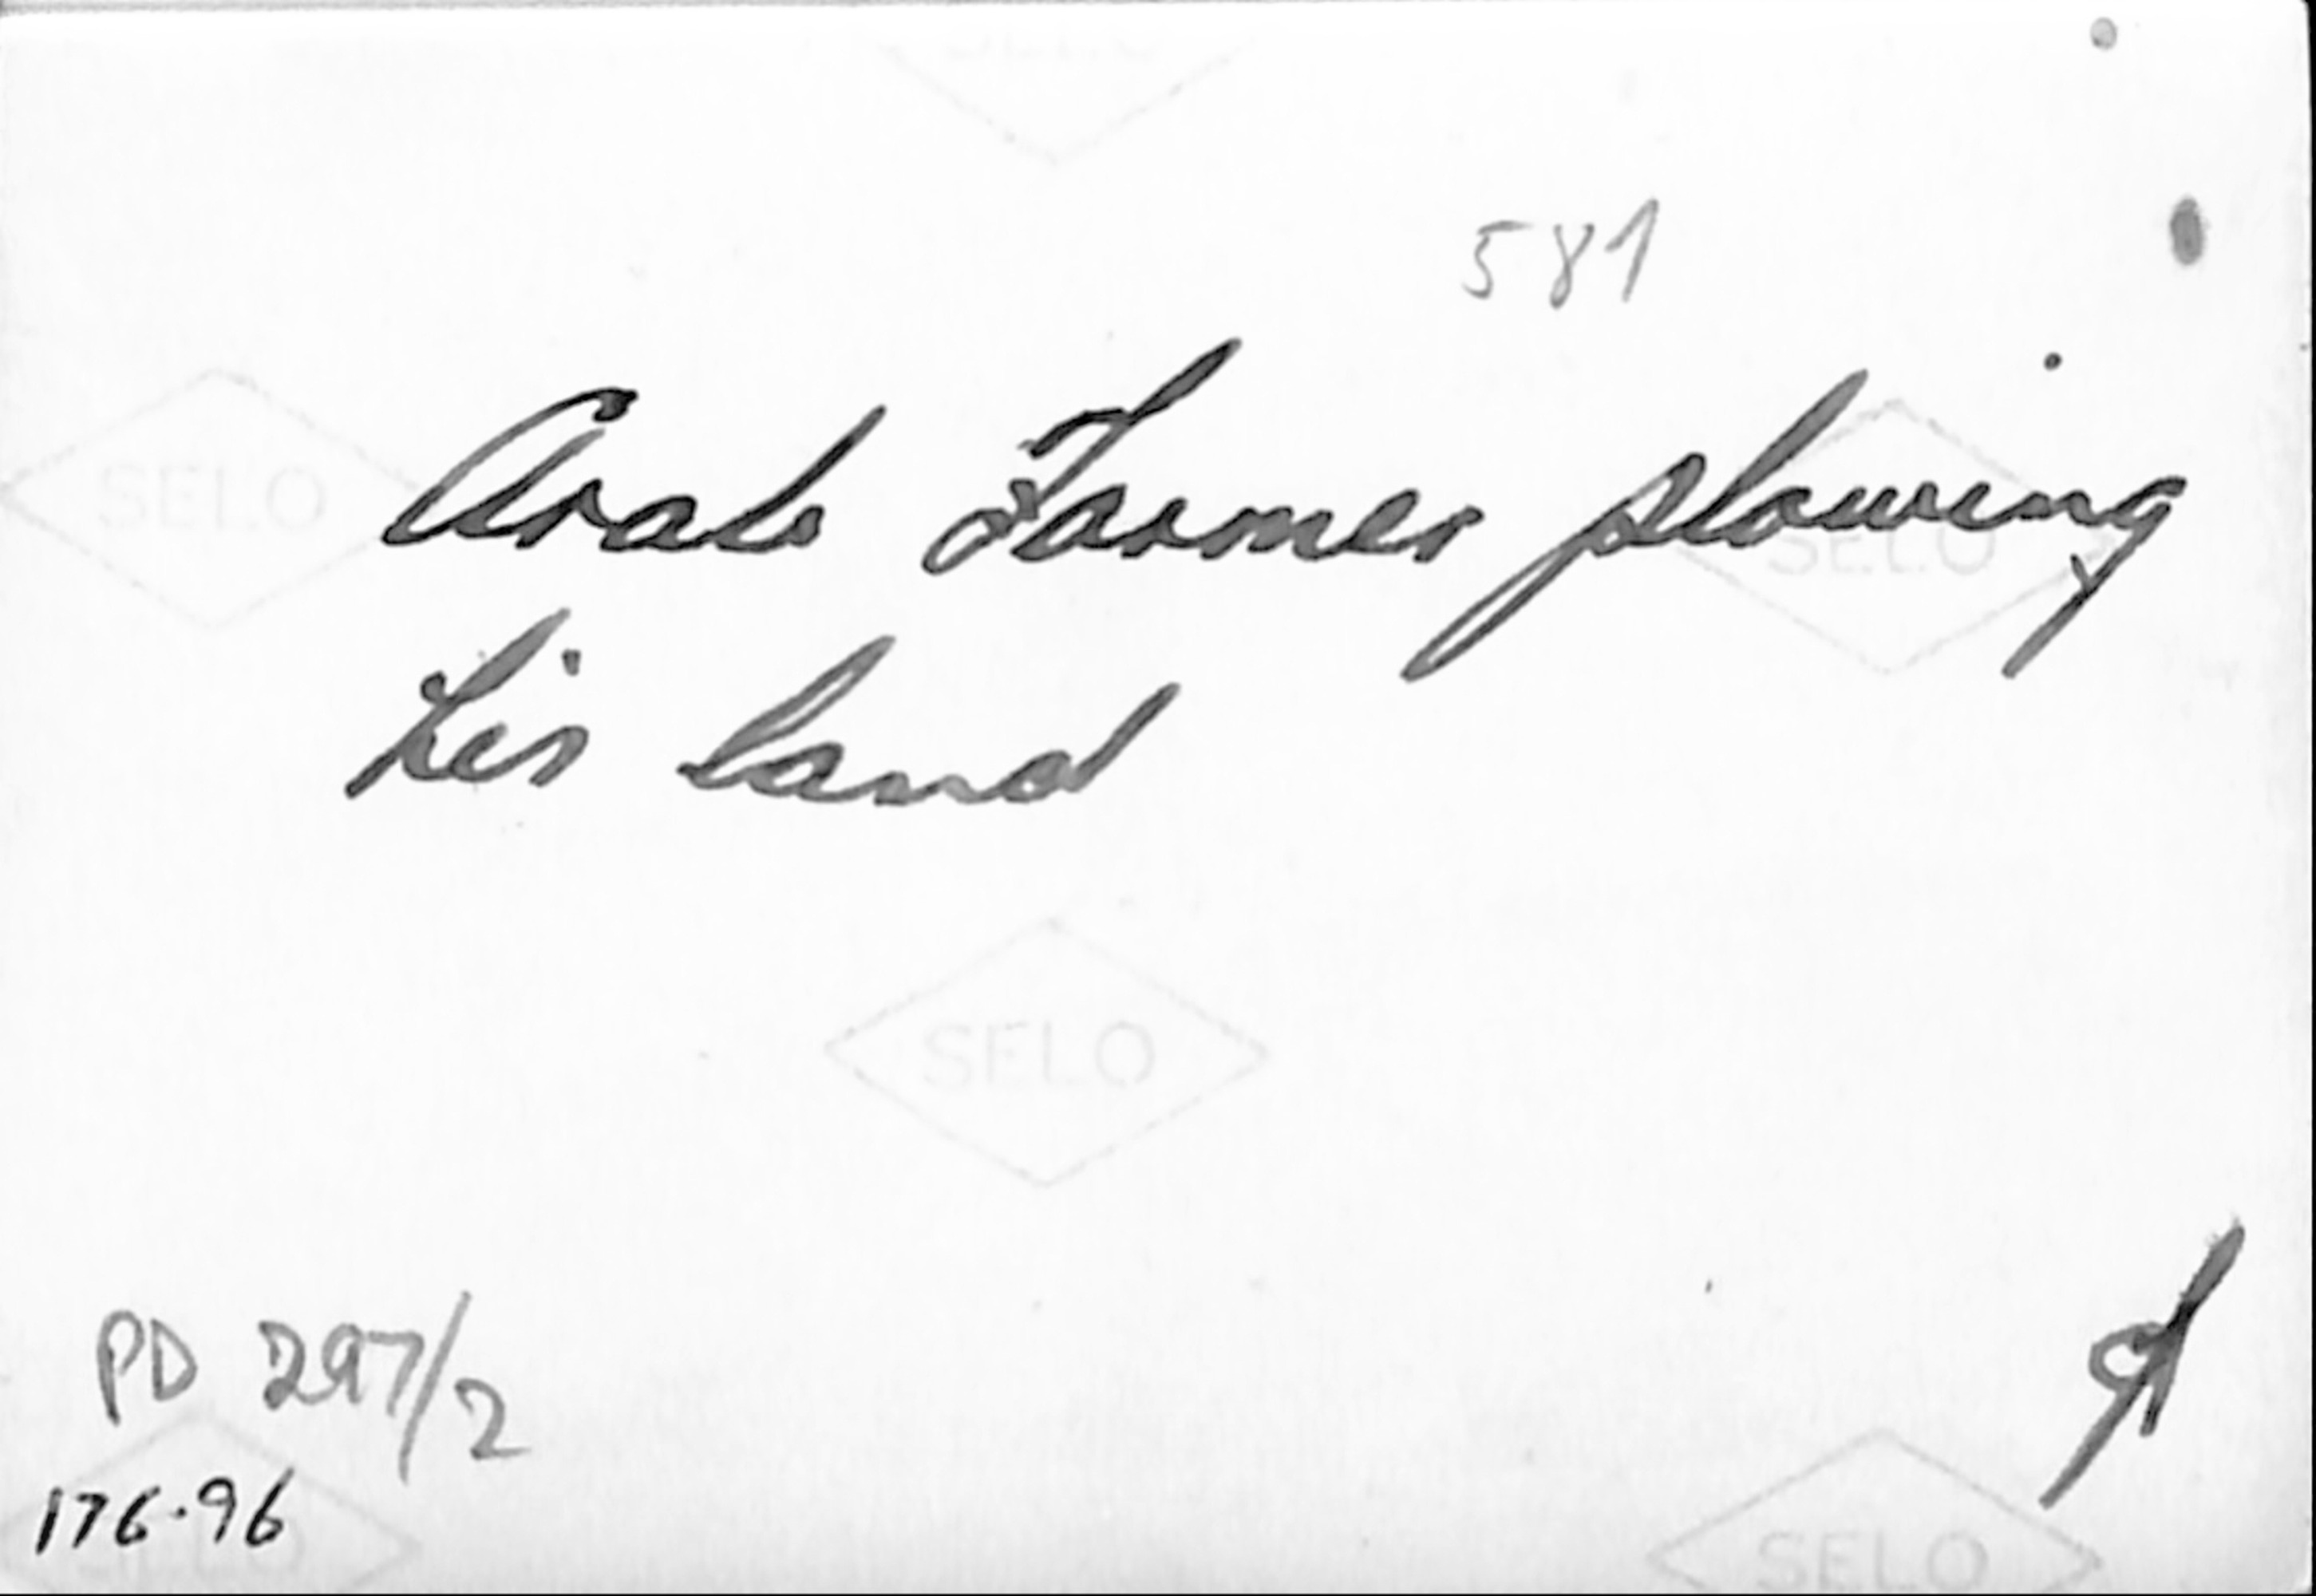 581
Arab Farmer plowing
his land
SELO
SELO
SELO
PD 297/2
176.96
SELO
SELO